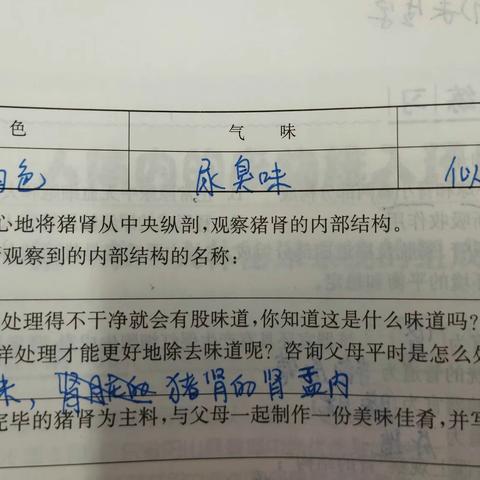 色 气 味
色 尿臭味 似
心地将猪肾从中央纵剖,观察猪肾的内部结构。
观察到的内部结构的名称:
处理得不干净就会有股味道,你知道这是什么味道吗?
样处理才能更好地除去味道呢? 咨询父母平时是怎么处
猪肾的肾盂内
完毕的猪肾为主料,与父母一起制作一份美味佳肴,并写